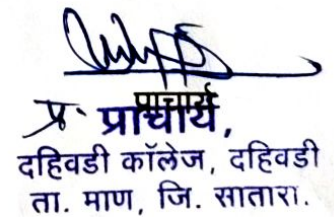 प्र. प्राचार्य,
दहिवडी कॉलेज, दहिवडी
ता. माण, जि. सातारा.